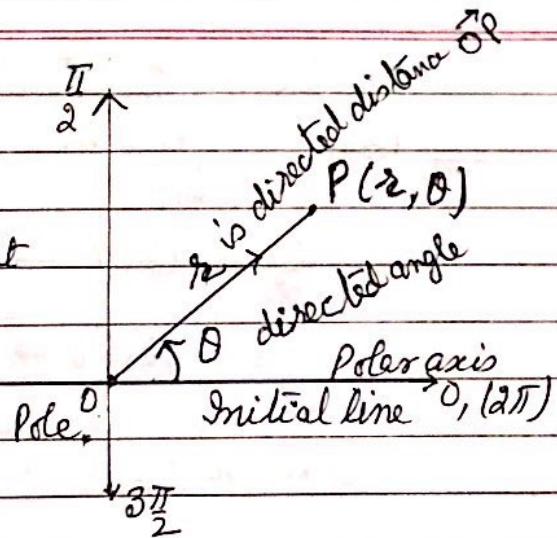 π/2
r is directed distance OP⃗
P(r, θ)
t
θ directed angle
Polar axis
Pole O
Initial line 0, (2π)
3π/2